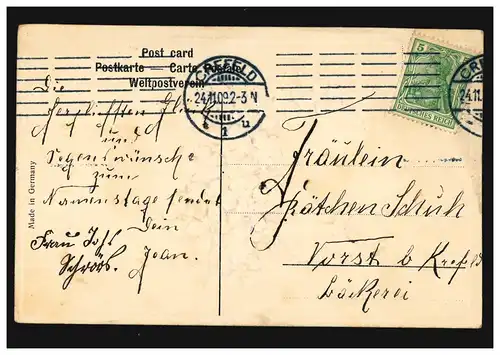 Post card
Postkarte — Carte postale
Weltpostverein
CREFELD
24.11.09.2-3 N
* 1 u
CREFELD
24.11.
5
DEUTSCHES REICH
Made in Germany
Die
herzlichsten Glück
und
Segenswünsche
zum
Namenstage sendet
Dein
Joan.
Frau Joh.
Schrörs.
Fräulein
Käthchen Schuh
Vorst b Krefeld
Bäckerei